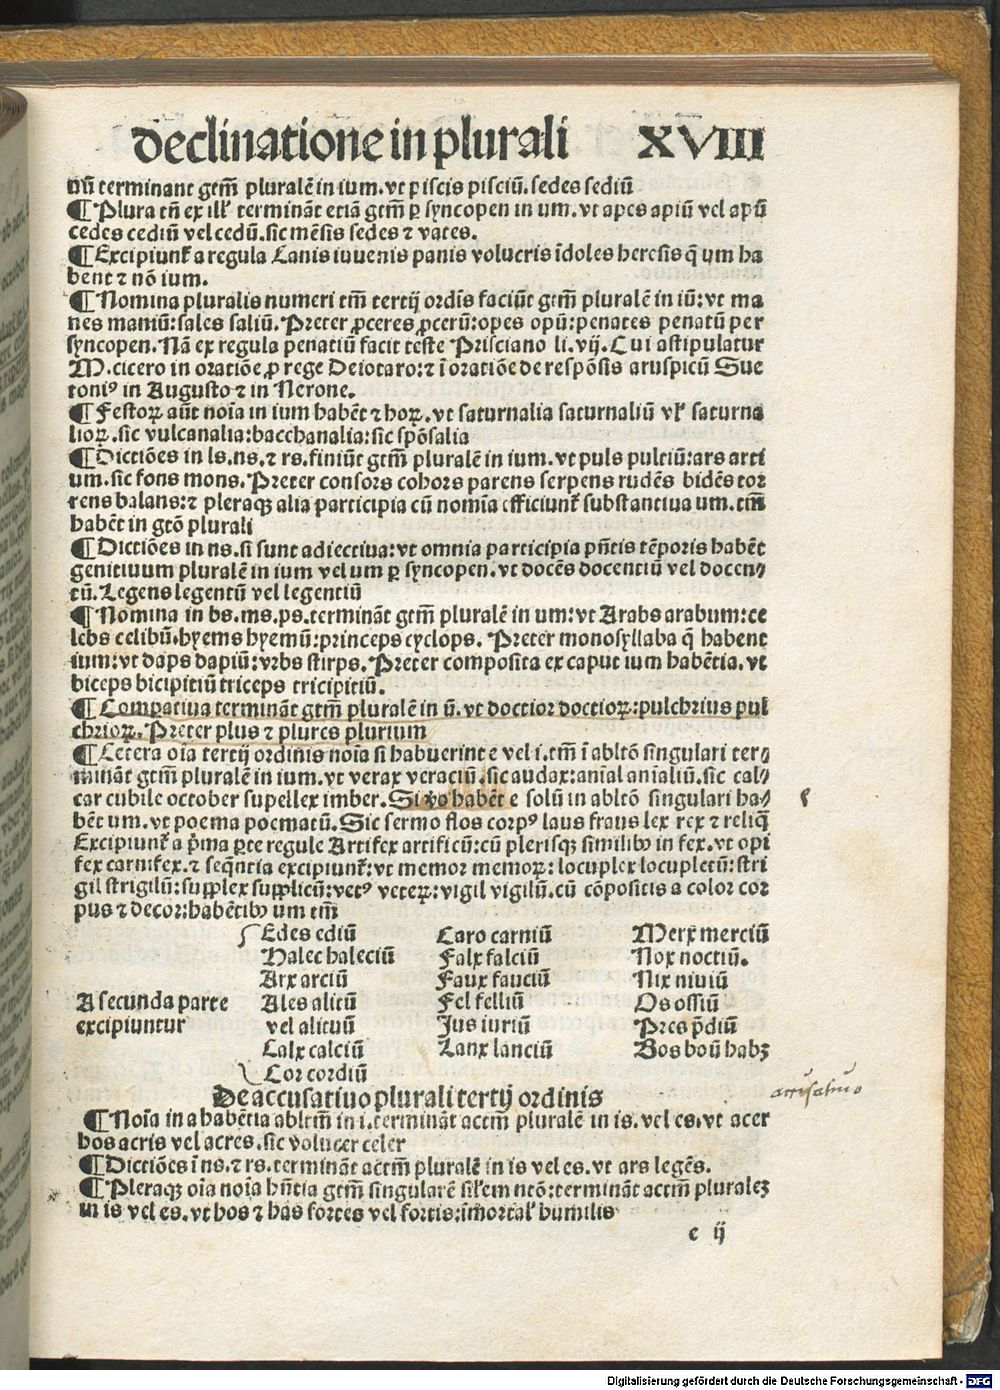 declinatione in plurali XVIII
nũ terminant gtm̃ pluralẽ in ium. vt piscis pisciũ. sedes sediũ
¶ Plura tñ ex ill' terminãt etiã gtm̃ ꝑ syncopen in um. vt apes apiũ vel apũ
cedes cediũ vel cedũ. sic mẽsis sedes ⁊ vates.
¶ Excipiunt̃ a regula Canis iuuenis panis volucris ĩdoles heresis q̃ um ha
bent ⁊ nõ ium.
¶ Nomina pluralis numeri tm̃ tertij ordĩs faciũt gtm̃ pluralẽ in iũ: vt ma
nes maniũ: sales saliũ. Preter ꝓceres ꝓcerũ: opes opũ: penates penatũ per
syncopen. Nã ex regula penatiũ facit teste Prisciano li. vij. Cui astipulatur
M. cicero in oratiõe ꝓ rege Deiotaro: ⁊ ĩ oratiõe de respõsis aruspicũ Sue
toniꝰ in Augusto ⁊ in Nerone.
¶ Festoꝝ aũt noĩa in ium habẽt ⁊ hoꝝ. vt saturnalia saturnaliũ vl' saturna
lioꝝ. sic vulcanalia: bacchanalia: sic spõsalia
¶ Dictiões in ls. ns. ⁊ rs. finiũt gtm̃ pluralẽ in ium. vt puls pultiũ: ars arti
um. sic fons mons. Preter consors cohors parens serpens rudẽs bidẽs tor
rens balans: ⁊ pleraqꝫ alia participia cũ nomĩa efficiunt̃ substantiua um. tm̃
habẽt in gtõ plurali
¶ Dictiões in ns. si sunt adiectiua: vt omnia participia pñtis tẽporis habẽt
genitiuum pluralẽ in ium vel um ꝑ syncopen. vt docẽs docentiũ vel docen⸗
tũ. Legens legentũ vel legentiũ
¶ Nomina in bs. ms. ps. terminãt gtm̃ pluralẽ in um: vt Arabs arabum: ce
lebs celibũ. hyems hyemũ: princeps cyclops. Preter monosyllaba q̃ habent
ium: vt daps dapiũ: vrbs stirps. Preter composita ex caput ium habẽtia. vt
biceps bicipitiũ triceps tricipitiũ.
¶ Compatiua terminãt gtm̃ pluralẽ in ũ. vt doctior doctioꝝ: pulchrius pul
chrioꝝ. Preter plus ⁊ plures plurium
¶ Cetera oĩa tertij ordinis noĩa si habuerint e vel i. tm̃ ĩ abltõ singulari ter⸗
minãt gtm̃ pluralẽ in ium. vt verax veraciũ. sic audax: anĩal anĩaliũ. sic cal⸗
car cubile october supellex imber. Si ṽo habẽt e solũ in abltõ singulari ha⸗
bẽt um. vt poema poematũ. Sic sermo flos corpꝰ laus fraus lex rex ⁊ reliq̃
Excipiunt̃ a p̃ma ꝑte regule Artifex artificũ: cũ plerisqꝫ similibꝰ in fex. vt opi
fex carnifex. ⁊ seq̃ntia excipiunt̃: vt memor memoꝝ: locuplex locupletũ: stri
gil strigilũ: supplex supplicũ: vetꝰ veteꝝ: vigil vigilũ. cũ cõpositis a color cor
pus ⁊ decor: habẽtibꝰ um tm̃
Edes ediũ Caro carniũ Merx merciũ
Halec haleciũ Falx falciũ Nox noctiũ.
Arx arciũ Faux fauciũ Nix niuiũ
A secunda parte Ales alitũ Fel felliũ Os ossiũ
excipiuntur vel alituũ Jus iuriũ Pres p̃diũ
Calx calciũ Lanx lanciũ Bos boũ habꝫ
Cor cordiũ
De accusatiuo plurali tertij ordinis
accusatiuo
¶ Noĩa in a habẽtia abltm̃ in i. terminãt actm̃ pluralẽ in is. vel es. vt acer
hos acris vel acres. sic volucer celer
¶ Dictiões ĩ ns. ⁊ rs. terminãt actm̃ pluralẽ in is vel es. vt ars legẽs.
¶ Pleraqꝫ oĩa noĩa hñtia gtm̃ singularẽ sil'em ntõ: terminãt actm̃ pluraleꝫ
in is vel es. vt hos ⁊ has fortes vel fortis: ĩmortal' humilis
e ij
Digitalisierung gefördert durch die Deutsche Forschungsgemeinschaft - DFG